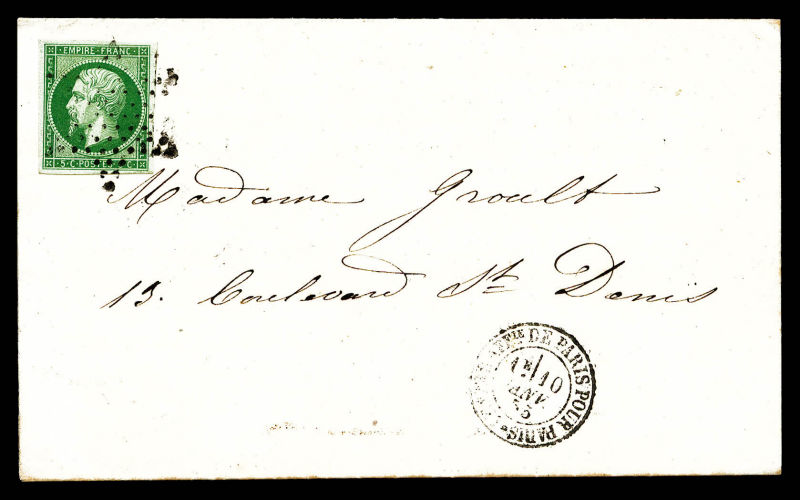 EMPIRE FRANC.
5 C. POSTES 5 C
Madame Groult
13. Boulevard St Denis
DE PARIS POUR PARIS
1E/10
AVR